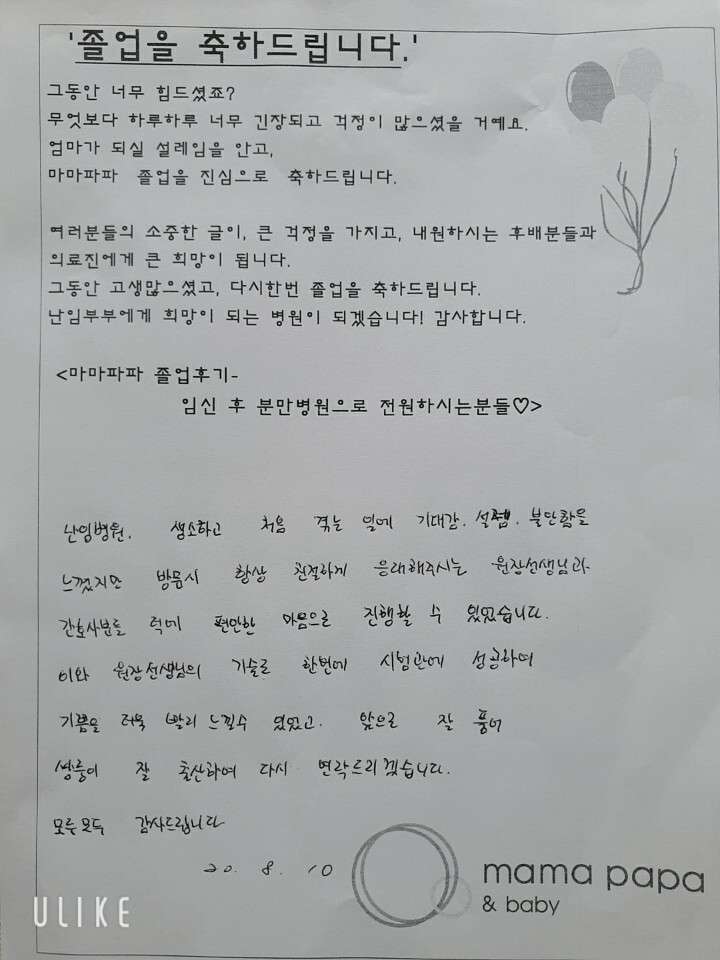 '졸업을 축하드립니다.'
그동안 너무 힘드셨죠?
무엇보다 하루하루 너무 긴장되고 걱정이 많으셨을 거예요.
엄마가 되실 설레임을 안고,
마마파파 졸업을 진심으로 축하드립니다.
여러분들의 소중한 글이, 큰 걱정을 가지고, 내원하시는 후배분들과
의료진에게 큰 희망이 됩니다.
그동안 고생많으셨고, 다시한번 졸업을 축하드립니다.
난임부부에게 희망이 되는 병원이 되겠습니다! 감사합니다.
<마마파파 졸업후기-
임신 후 분만병원으로 전원하시는분들♡>
난임병원. 생소하고 처음 겪는 일에 기대감. 설렘. 불안함을
느꼈지만 방문시 항상 친절하게 응대해주시는 원장선생님과
간호사분들 덕에 편안한 마음으로 진행할 수 있었습니다.
이와 원장선생님의 기술로 한번에 시험관에 성공하여
기쁨을 더욱 빨리 느낄수 있었고. 앞으로 잘 품어
쌍둥이 잘 출산하여 다시 연락드리겠습니다.
모두모두 감사드립니다
20. 8. 10
mama papa
& baby
ULIKE